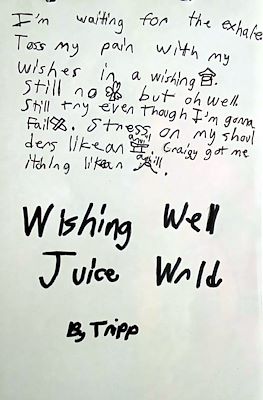 I'm waiting for the exhale
Toss my pain with my
wishes in a wishing
Still no but oh well
Still try even though I'm gonna
Fail. Stress on my shoul
ders like an anvil. got me
itching like an
Wishing Well
Juice Wrld
By Tripp